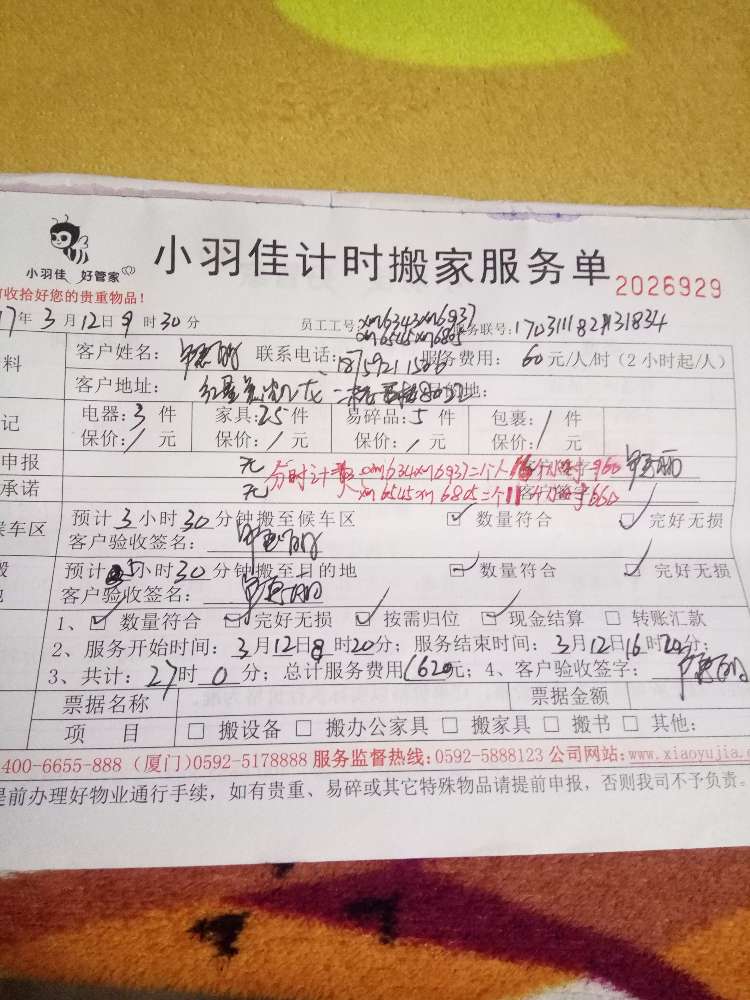 小羽佳 好管家
小羽佳计时搬家服务单 2026929
收拾好您的贵重物品!
17年3月12日9时30分 员工工号 xm6343xm6937 xm6545xm6805 服务联号:
客户姓名: 联系电话: 服务费用: 60元/人/时(2小时起/人)
客户地址: 地:
电器:3件 家具:25件 易碎品:5件 包裹:/件
保价:/元 保价:/元 保价:/元 保价:/元
申报 无 分时计费 960
承诺 无 xm6545xm6805二个 660
候车区 预计3小时30分钟搬至候车区 ☑ 数量符合 ☑ 完好无损
客户验收签名:
预计5小时30分钟搬至目的地 ☑ 数量符合 ☑ 完好无损
客户验收签名:
1、☑ 数量符合 ☑ 完好无损 ☑ 按需归位 ☑ 现金结算 □ 转账汇款
2、服务开始时间:3月12日8时20分;服务结束时间:3月12日16时20分;
3、共计:27时0分;总计服务费用1620元;4、客户验收签字:
票据名称 票据金额
项 目 □ 搬设备 □ 搬办公家具 □ 搬家具 □ 搬书 □ 其他:
400-6655-888 (厦门)0592-5178888 服务监督热线:0592-5888123 公司网站:www.xiaoyujia.c
提前办理好物业通行手续,如有贵重、易碎或其它特殊物品请提前申报,否则我司不予负责。